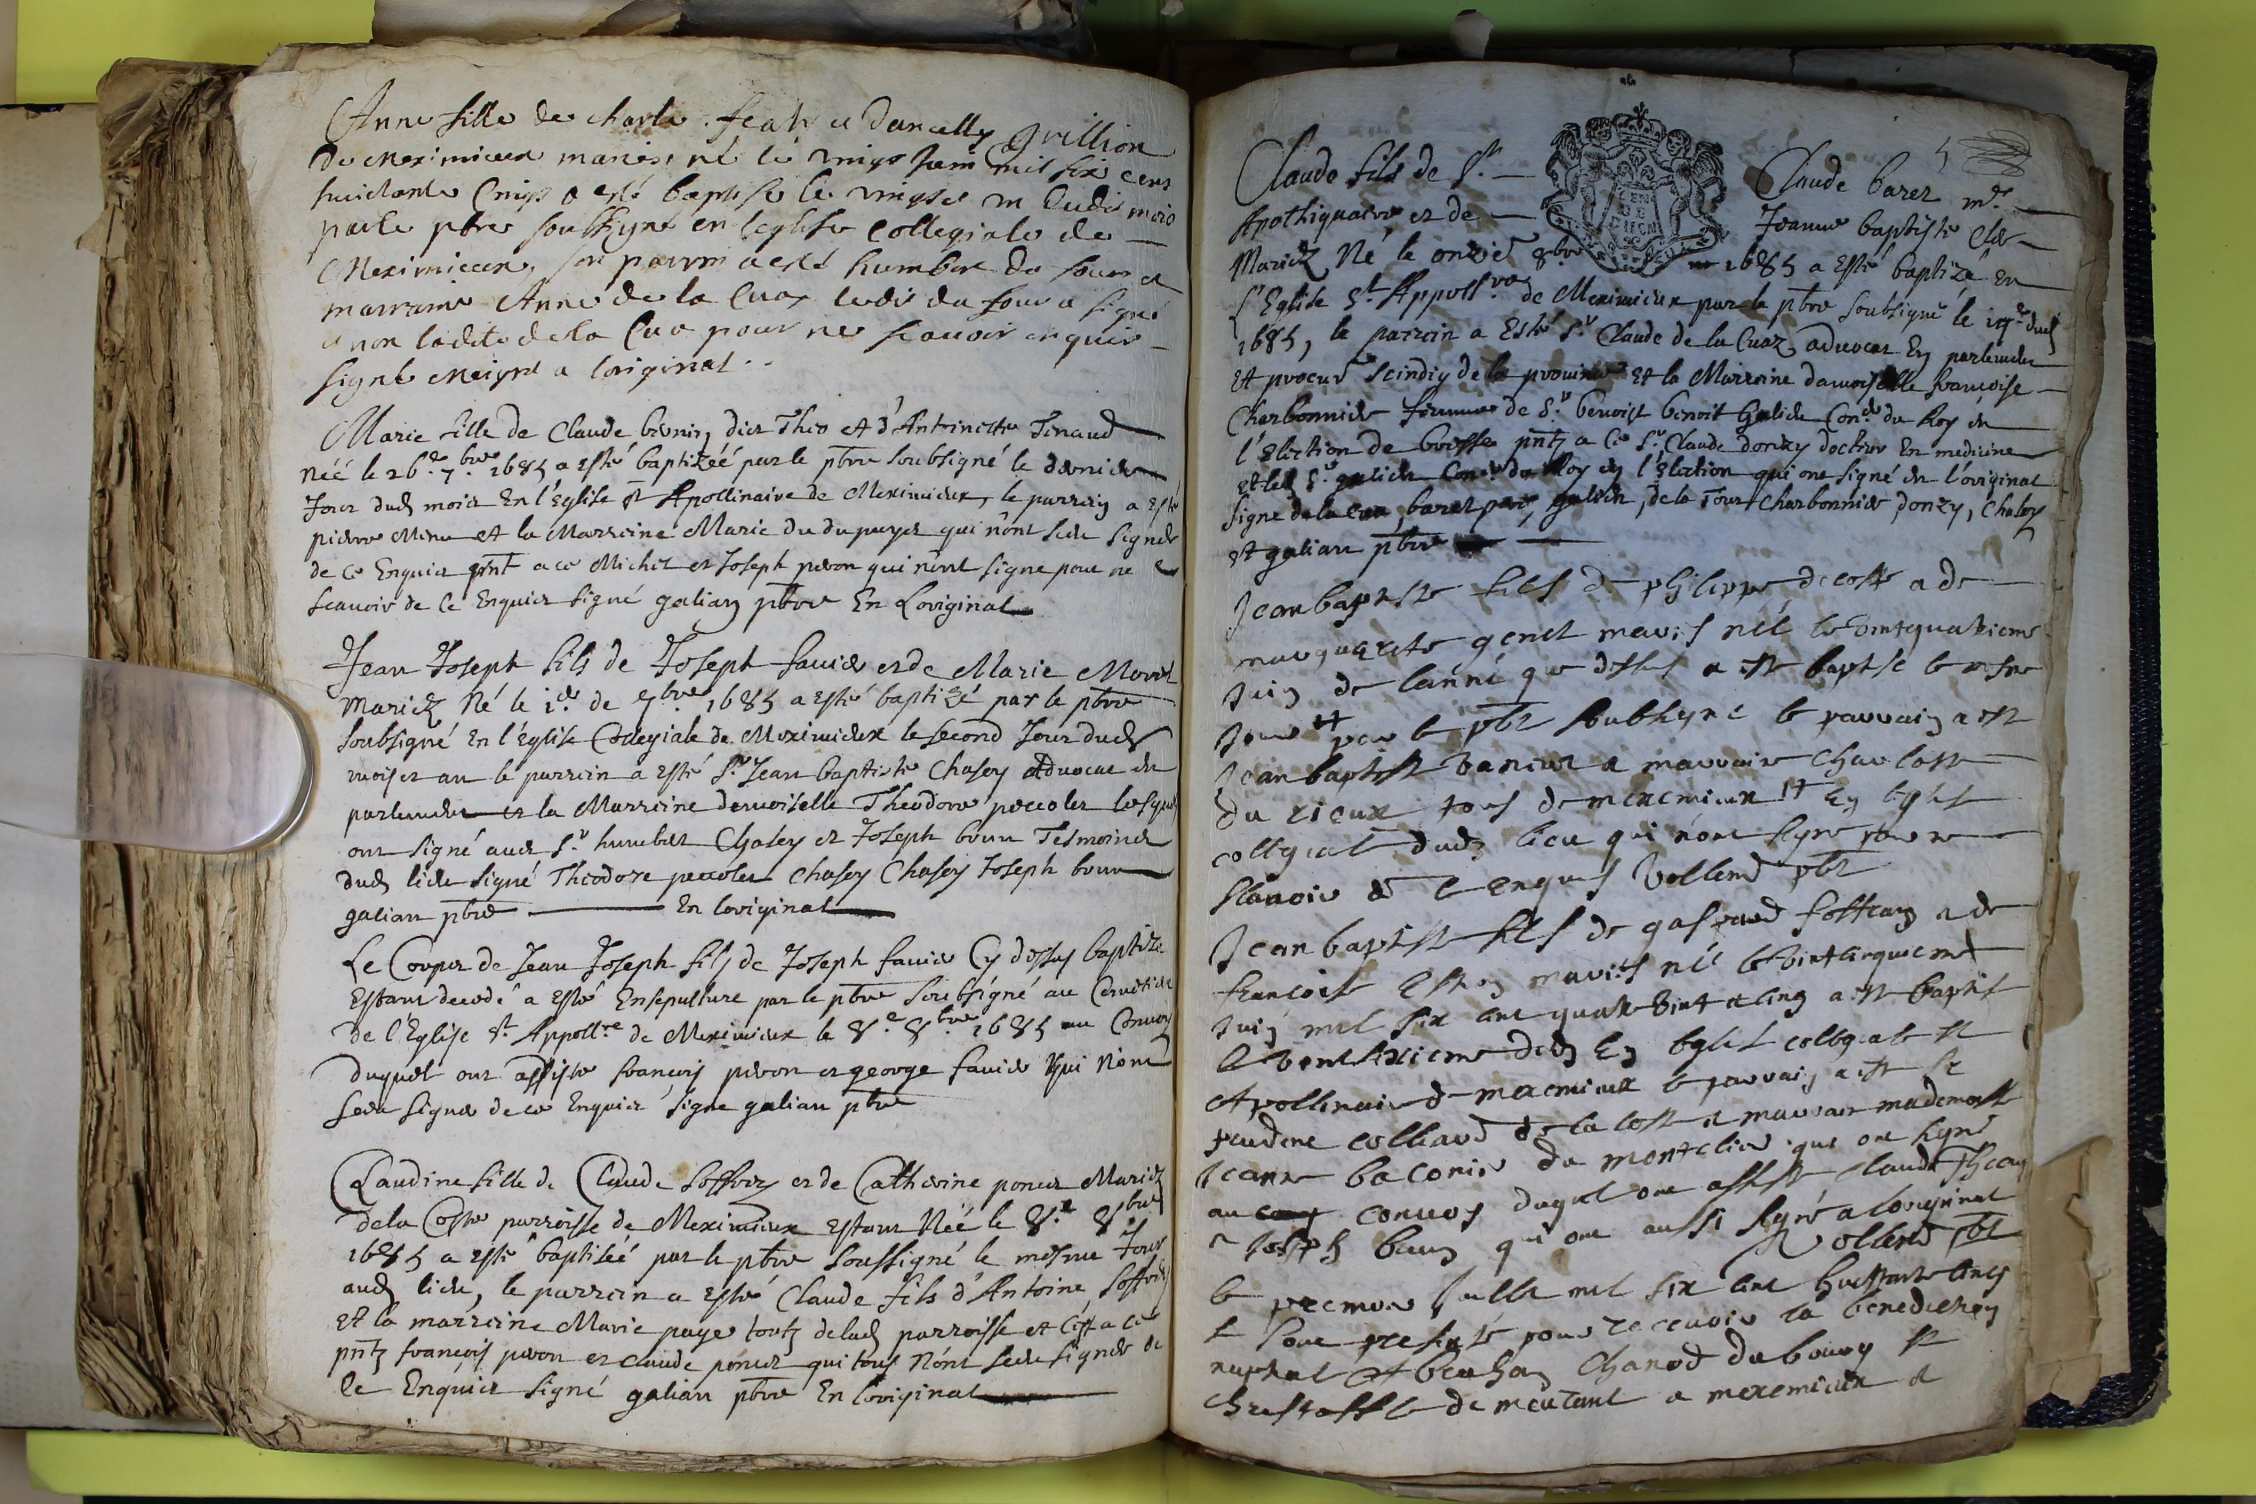 Anne fille de Charle et d'ancelly Grillion
de Meximieux mariés, né le vingt Juin mil six cens
huictante Cinq a esté baptisé le vingt et un dudit mois
par le pbre soubsigné en leglise Collegiale de
Meximieux, son parrin a esté humbert du four et
marraine Anne de la Cua ledit du four a signé
et non ladite de la Cua pour ne scavoir enquis
signé a loriginal
Marie fille de Claude dict Theo et d'Antoinette Tenaud
Néé le 26e 7bre 1685 a esté baptizéé par le pbre soubsigné le dernier
Jour dud mois En l'Eglise St Apollinaire de Meximieux, le parrein a esté
pierre et la Marreine Marie du dupuyer qui n'ont sceu signer
de ce Enquis pnt a ce Michel et Joseph peron qui n'ont signe pour ne
scavoir de Ce Enquis signé galian pbre En Loriginal
Jean Joseph fils de Joseph favier et de Marie Morel
Mariez Né le 1er de 7bre 1685 a esté baptizé par le pbre
soubsigné En l'Eglise Collegiale de Meximieux le second Jour dud
mois et an le parrein a esté Sr Jean baptiste Chasey Advocat en
parlement et la Marreine demoiselle Theodore peccolet lesquels
ont signé avec Sr humbert Chasey et Joseph brun Tesmoins
dud lieu signé Theodore peccolet Chasey Chasey Joseph brun
galian pbre En loriginal
Le Corps de Jean Joseph fils de Joseph favier Cy dessus baptizé
Estant decedé a esté Ensepulture par le pbre soubsigné au Cemetiere
de l'Eglise St Appollre de Meximieux le 8e 8bre 1685 au Convoy
duquel ont assisté francois peron et george favier qui n'ont
sceu signer de ce Enquis signe galian pbre
Claudine fille de Claude Joffrey et de Catherine poncet Mariez
de la Coste parroisse de Meximieux Estant Néé le 8e 8bre
1685 a esté baptiséé par le pbre soussigné le mesme Jour
aud lieu, le parrein a esté Claude fils d'Antoine Joffrey
et la marreine Marie page touts delad parroisse et Cest a ce
pntz francois peron et claude poncet qui tous n'ont sceu signer de
Ce Enquis signé galian pbre En loriginal
5
Claude fils de Sr Claude baret me
Apothiquaire et de Jeanne baptiste
Mariez Né le onzie 8bre 1685 a esté baptizé En
l'Eglise St Appollre de Meximieux par le pbre soubsigné le dud
1685, le parrein a Esté Sr Claude de la Cuaz advocat En parlement
Et procur scindiq de la province Et la Marreine damoiselle francoise
Charbonnier femme de Sr benoist benoit Galien Coner du Roy en
l'Election de bresse pntz a Ce Sr Claude donzy docteur En medicine
et led Sr galien Coner du Roy en l'Election qui ont signé en l'original
signe de la cua, baret galien, de la Tour Charbonnier, donzy, Chasey
et galian pbre
Jean baptiste fils de philippe de coste a de
marguerite genet mariés néé le vintquatrieme
Juin de lanné que dessus a este baptise le mesme
Jour par le pbr soubsigné le parrain a este
Jean baptiste a marraine Charlotte
du rieux tous de meximieux En leglise
collegial dud lieu qui n'ont signe pour ne
scavoir de ce enquis Vollerd pbr
Jean baptiste fils de gaspard a de
francoise mariés néé le vintcinquieme
Juin mil six cent quatre vint et cinq a este baptisé
le vint sixieme dud En leglise collegiale St
Apollinaire de meximieux le parrain a este Sr
prudent colliard de la coste et marraine mademoiselle
Jeanne baconier du montelier qui ont signé
au convoy duquel ont assiste claude
a Joseph brun qui ont aussi signé a loriginal
Vollerd pbr
le premier Juillet mil six cent huictante cinq
se sont presenté pour recevoir la benediction
nuptial Chanod du bourg St
Christophle demeurant a meximieux a